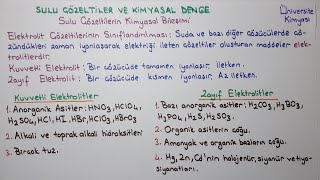 SULU ÇÖZELTİLER VE KİMYASAL DENGE
Üniversite Kimyası
Sulu Çözeltilerin Kimyasal Bileşimi
Elektrolit Çözeltilerinin Sınıflandırılması: Suda ve bazı diğer çözücülerde çö-
zündükleri zaman iyonlaşarak elektriği ileten çözeltiler oluşturan maddeler elek-
trolitlerdir.
Kuvvetli Elektrolit: Bir çözücüde tamamen iyonlaşır. İletken.
Zayıf Elektrolit: Bir çözücüde kısmen iyonlaşır. Az iletken.
Kuvvetli Elektrolitler
1. Anorganik Asitler: HNO3, HClO4,
H2SO4, HCl, HI, HBr, HClO3, HBrO3
2. Alkali ve toprak alkali hidroksitleri
3. Birçok tuz.
Zayıf Elektrolitler
1. Bazı anorganik asitler: H2CO3, H3BO3,
H3PO4, H2S, H2SO3.
2. Organik asitlerin çoğu.
3. Amonyak ve organik bazların çoğu.
4. Hg, Zn, Cd'nin halojenür, siyanür ve tiyo-
siyanatları.